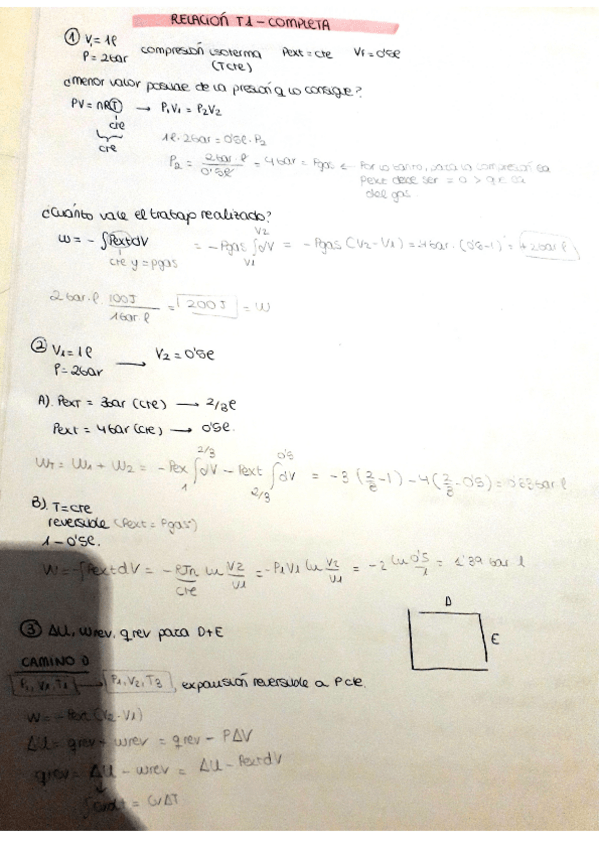 RELACIÓN T1 - COMPLETA
① V₁ = 1l
P = 2bar
compresión isoterma Pext = cte Vf = 0'5l
(T cte)
¿menor valor posible de la presión q lo consigue?
PV = nRT → P₁V₁ = P₂V₂
cte
cte
1l · 2bar = 0'5l · P₂
P₂ = 2bar·l / 0'5l = 4bar = Pgas ← Por lo tanto, para la compresión la
Pext debe ser = o > q la
del gas
¿Cuánto vale el trabajo realizado?
W = - ∫Pext dV = -Pgas ∫dV = -Pgas (V₂-V₁) = -4bar · (0'5-1) = +2bar l
V2
V1
cte y = pgas
2 bar·l · 100J / 1bar·l = 200J = W
② V₁ = 1l → V₂ = 0'5l
P = 2bar
A). Pext = 3bar (cte) → 2/3l
Pext = 4bar (cte) → 0'5l.
WT = W₁ + W₂ = -Pex ∫dV - Pext ∫dV = -3 (2/3 -1) - 4(
2/3
1
0'5
2/3
B). T = cte
reversible (Pext = Pgas)
1 - 0'5l.
W = -∫Pext dV = -RTn ln V2/V1 = -P₁V₁ ln V2/V1 = -2 ln 0'5/1 = 1'39 bar l
cte
D
③ ΔU, Wrev, qrev para D+E
E
CAMINO D
P₁, V₁, T₁ → P₁, V₂, T₃, expansión reversible a P cte.
W = -Pext (V₂-V₁)
ΔU = qrev + Wrev = qrev - PΔV
qrev = ΔU - Wrev = ΔU - Pext dV
= CvΔT